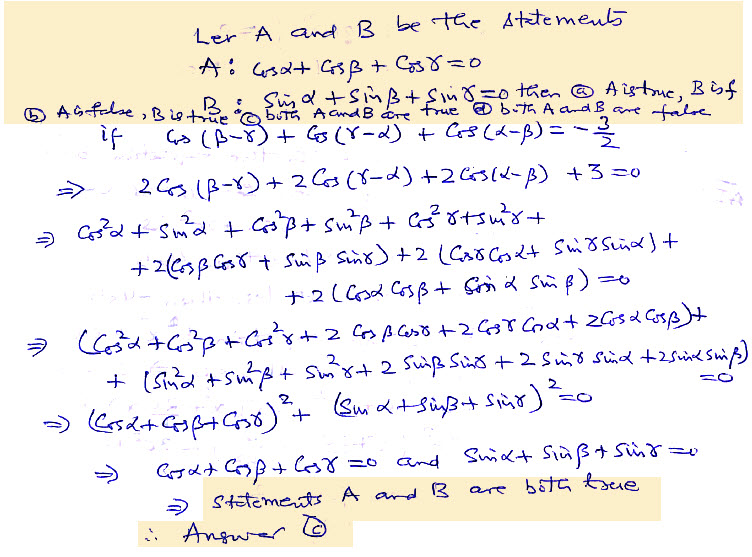 Ler A and B be the statements
A: Cosα + Cosβ + Cosγ = 0
B: Sinα + Sinβ + Sinγ = 0 then ⓐ A is true, B is f
ⓑ A is false, B is true ⓒ both A and B are true ⓓ both A and B are false
if Cos (β-γ) + Cos (γ-α) + Cos (α-β) = -3/2
⇒ 2 Cos (β-γ) + 2 Cos (γ-α) + 2 Cos (α-β) + 3 = 0
⇒ Cos²α + Sin²α + Cos²β + Sin²β + Cos²γ + Sin²γ +
+ 2(Cosβ Cosγ + Sinβ Sinγ) + 2 (Cosγ Cosα + Sinγ Sinα) +
+ 2 (Cosα Cosβ + Sin α Sin β) = 0
⇒ (Cos²α + Cos²β + Cos²γ + 2 Cosβ Cosγ + 2 Cosγ Cosα + 2 Cosα Cosβ) +
+ (Sin²α + Sin²β + Sin²γ + 2 Sinβ Sinγ + 2 Sinγ Sinα + 2 Sinα Sinβ)
= 0
⇒ (Cosα + Cosβ + Cosγ)² + (Sinα + Sinβ + Sinγ)² = 0
⇒ Cosα + Cosβ + Cosγ = 0 and Sinα + Sinβ + Sinγ = 0
⇒ Statements A and B are both true
∴ Answer ⓒ